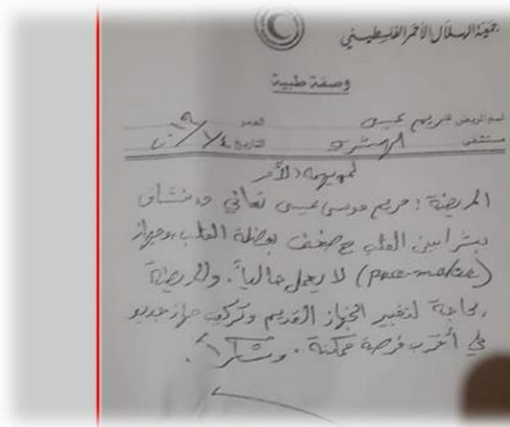 جمعية الهلال الأحمر الفلسطيني
وصفة طبية
اسم المريض مريم عيسى العمر
مستشفى الهمشري التاريخ
لمن يهمه الأمر
المريضة: مريم موسى عيسى تعاني من نشاف
بشرايين القلب مع ضعف بعضلة القلب وجهاز
(pace-maker) لا يعمل حالياً. والمريضة
بحاجة لتغيير الجهاز القديم وتركيب جهاز جديد
في أقرب فرصة ممكنة. وشكراً.